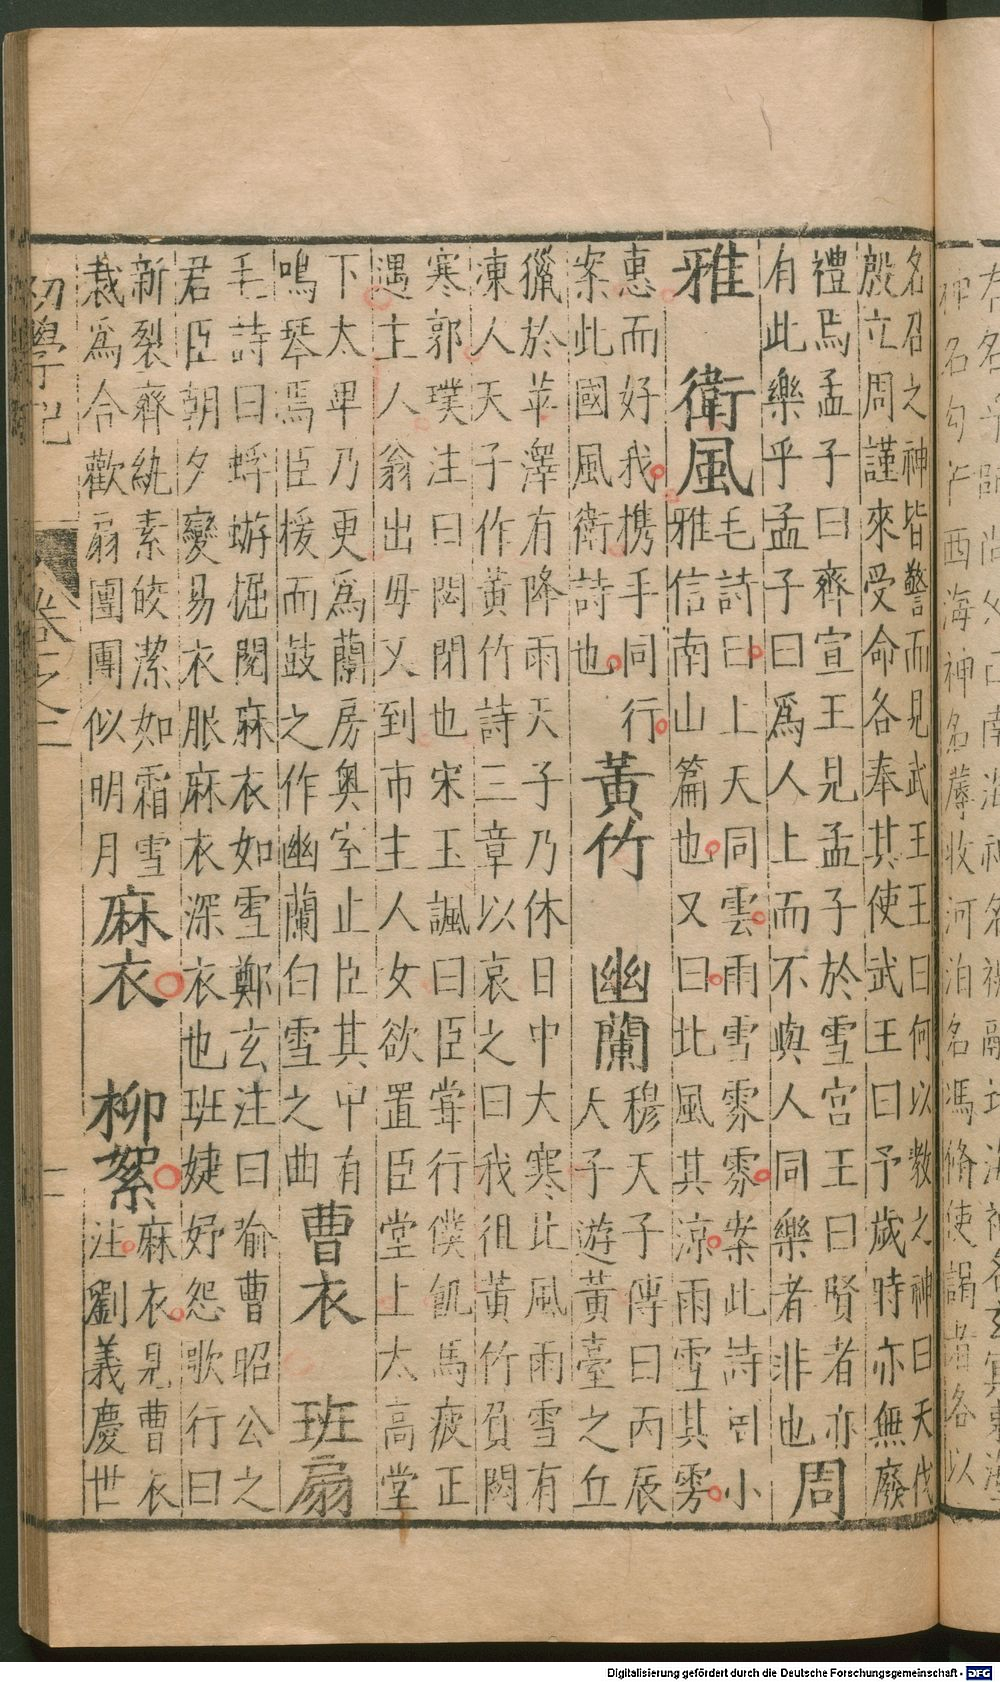 神名勾芒西海神名蓐收河泊名馮脩使謁者各以
名召之神皆警而見武王王曰何以教之神曰天伐
殷立周謹來受命各奉其使武王曰予歲時亦無廢
禮焉孟子曰齊宣王見孟子於雪宮王曰賢者亦
有此樂乎孟子曰爲人上而不與人同樂者非也
周
雅 衛風
毛詩曰上天同雲雨雪雰雰案此詩司小
雅信南山篇也又曰北風其涼雨雪其雱
惠而好我携手同行
案此國風衛詩也
黃竹 幽蘭
穆天子傳曰丙辰
天子遊黃臺之丘
獵於苹澤有降雨天子乃休日中大寒北風雨雪有
凍人天子作黃竹詩三章以哀之曰我徂黃竹負閟
寒郭璞注曰閟閉也宋玉諷曰臣嘗行僕飢馬疲正
遇主人翁出毋又到市主人女欲置臣堂上太高堂
下太卑乃更爲蘭房奧室止臣其中有
鳴琴焉臣援而鼓之作幽蘭白雪之曲
曹衣 班扇
毛詩曰蜉蝣掘閱麻衣如雪鄭玄注曰喻曹昭公之
君臣朝夕變易衣服麻衣深衣也班婕妤怨歌行曰
新裂齊紈素皎潔如霜雪
裁爲合歡扇團團似明月
麻衣 柳絮
麻衣見曹衣
注劉義慶世
初學記 卷之二
Digitalisierung gefördert durch die Deutsche Forschungsgemeinschaft - DFG